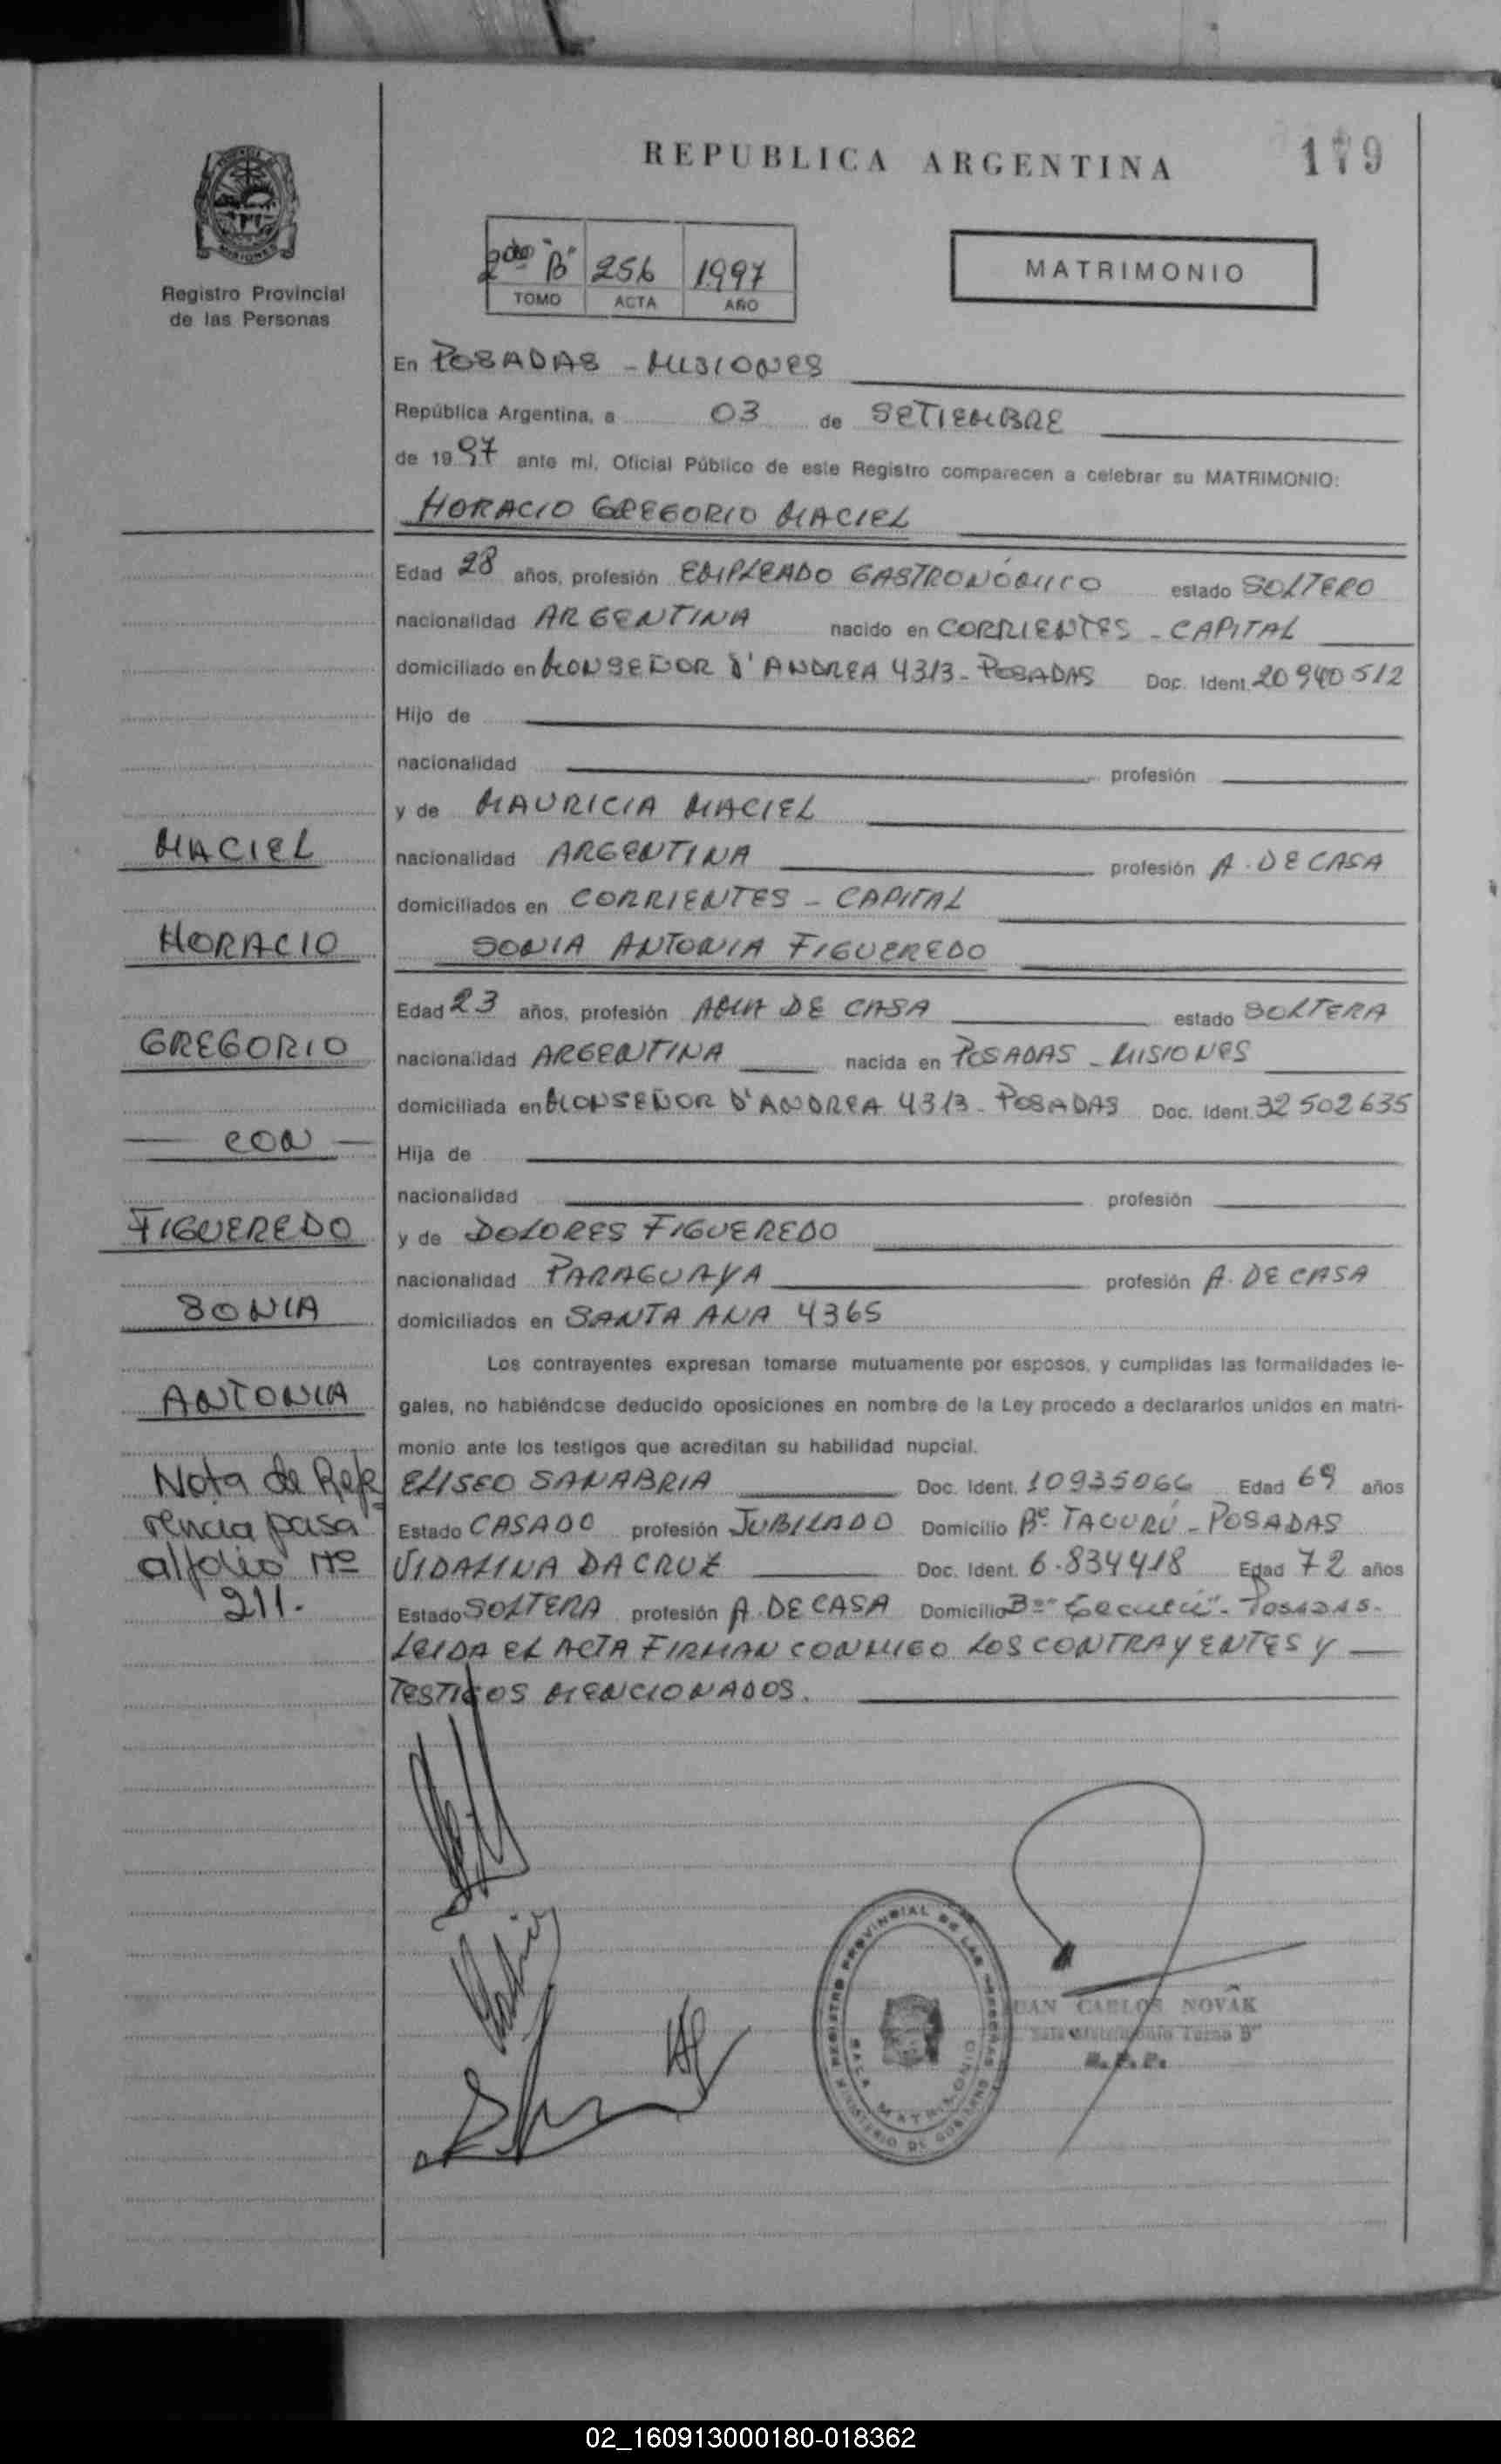 REPUBLICA ARGENTINA
179
MISIONES
Registro Provincial
de las Personas
2do "B" 256 1997
TOMO ACTA AÑO
MATRIMONIO
En POSADAS - MISIONES
República Argentina, a 03 de SETIEMBRE
de 1997 ante mí, Oficial Público de este Registro comparecen a celebrar su MATRIMONIO:
HORACIO GREGORIO MACIEL
Edad 28 años, profesión EMPLEADO GASTRONÓMICO estado SOLTERO
nacionalidad ARGENTINA nacido en CORRIENTES - CAPITAL
domiciliado en MONSEÑOR D'ANDREA 4313 - POSADAS Doc. Ident. 20 940 512
Hijo de
nacionalidad profesión
y de MAURICIA MACIEL
nacionalidad ARGENTINA profesión A. DE CASA
domiciliados en CORRIENTES - CAPITAL
SONIA ANTONIA FIGUEREDO
Edad 23 años, profesión AMA DE CASA estado SOLTERA
nacionalidad ARGENTINA nacida en POSADAS - MISIONES
domiciliada en MONSEÑOR D'ANDREA 4313 - POSADAS Doc. Ident. 32 502 635
Hija de
nacionalidad profesión
y de DOLORES FIGUEREDO
nacionalidad PARAGUAYA profesión A. DE CASA
domiciliados en SANTA ANA 4365
Los contrayentes expresan tomarse mutuamente por esposos, y cumplidas las formalidades le-
gales, no habiéndose deducido oposiciones en nombre de la Ley procedo a declararlos unidos en matri-
monio ante los testigos que acreditan su habilidad nupcial.
ELISEO SANABRIA Doc. Ident. 10935066 Edad 69 años
Estado CASADO profesión JUBILADO Domicilio Bº TACURÚ - POSADAS
VIDALINA DA CRUZ Doc. Ident. 6.834418 Edad 72 años
Estado SOLTERA profesión A. DE CASA Domicilio Bº - POSADAS.
LEIDA EL ACTA FIRMAN CONMIGO LOS CONTRAYENTES Y
TESTIGOS MENCIONADOS.
MACIEL
HORACIO
GREGORIO
CON
FIGUEREDO
SONIA
ANTONIA
Nota de Refe
rencia pasa
al folio Nº
211.
REGISTRO PROVINCIAL DE LAS PERSONAS
MINISTERIO DE GOBIERNO
SALA MATRIMONIO
JUAN CARLOS NOVAK
Sala Matrimonio Turno B"
R. P. P.
02_160913000180-018362